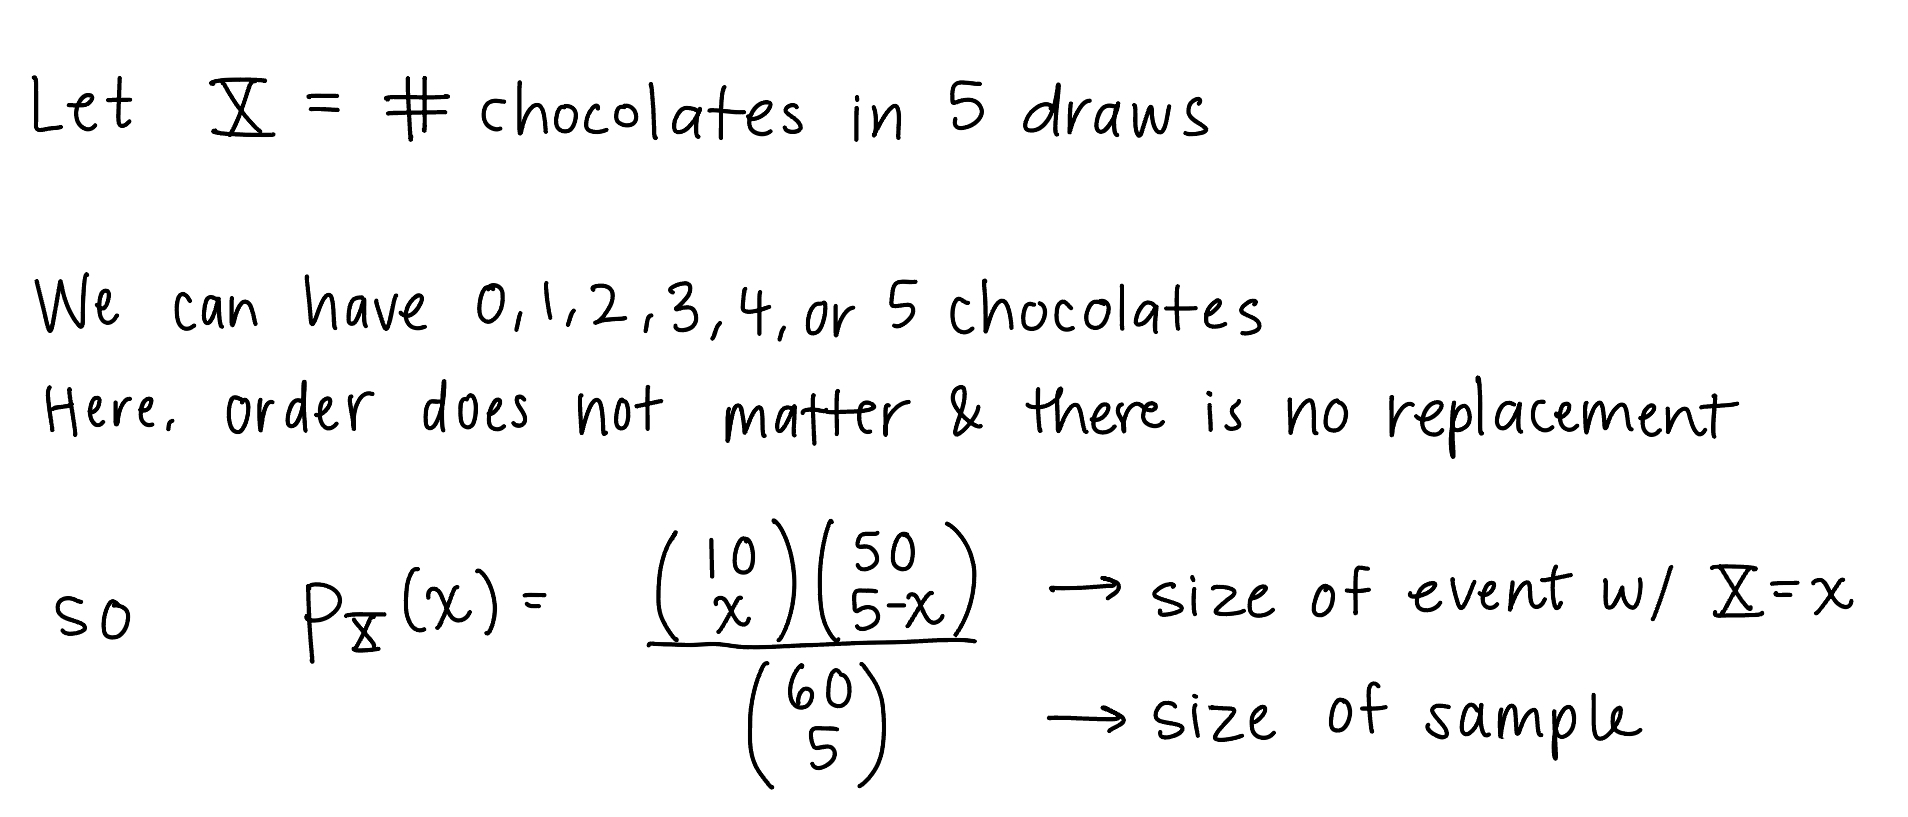 Let X = # chocolates in 5 draws
We can have 0,1,2,3,4, or 5 chocolates
Here, order does not matter & there is no replacement
so pX(x) = (10 x)(50 5-x) / (60 5) → size of event w/ X=x
→ size of sample